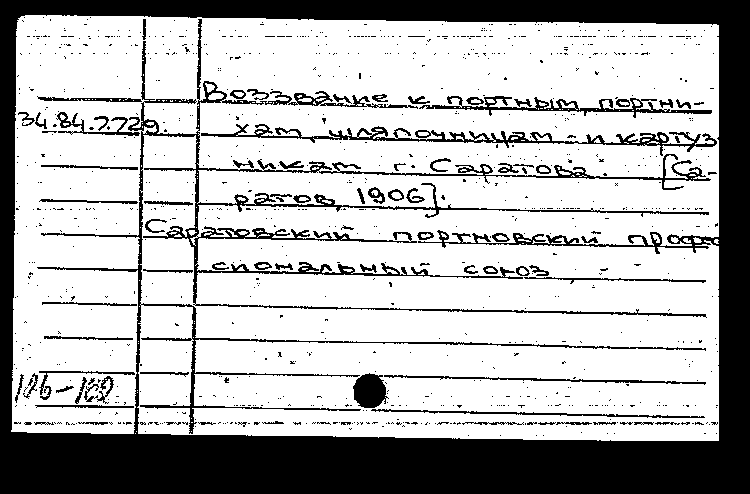 Воззвание к портным, портни-
34.84.7.729. хам, шляпочницам и картуз
никам г. Саратова. [Са-
ратов, 1906].
Саратовский портновский профес
сиональный союз